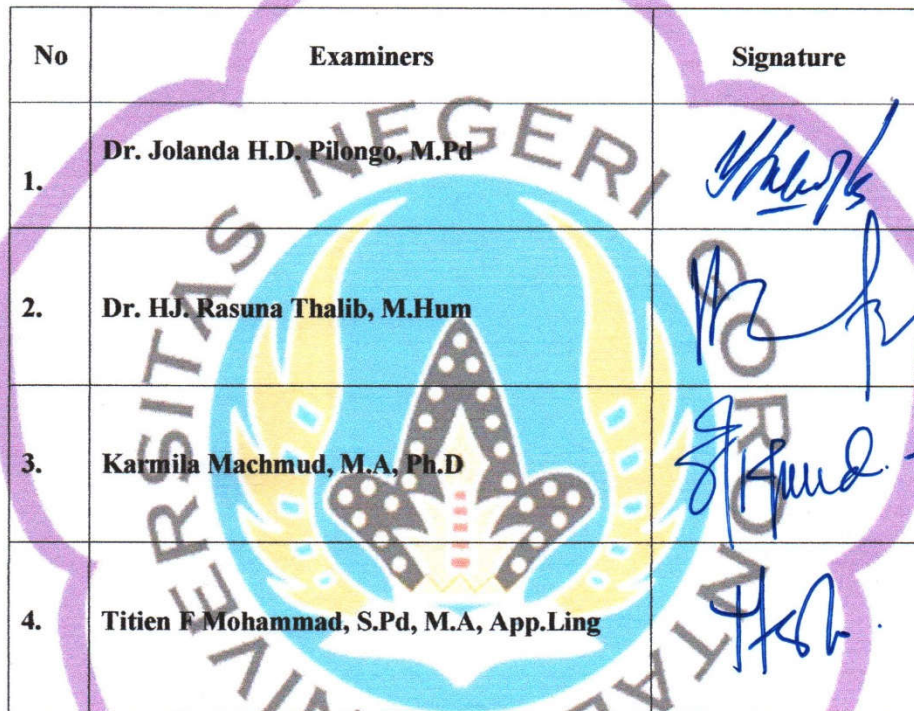 No Examiners Signature
1. Dr. Jolanda H.D. Pilongo, M.Pd
2. Dr. HJ. Rasuna Thalib, M.Hum
3. Karmila Machmud, M.A, Ph.D
4. Titien F Mohammad, S.Pd, M.A, App.Ling
UNIVERSITAS NEGERI GORONTALO